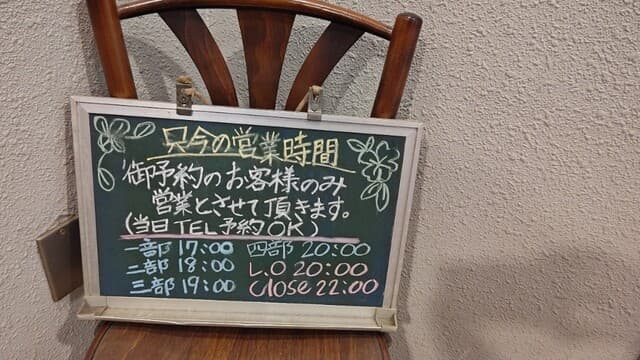 只今の営業時間
御予約のお客様のみ
営業とさせて頂きます。
(当日TEL予約OK)
一部 17:00 四部 20:00
二部 18:00 L.O 20:00
三部 19:00 Close 22:00